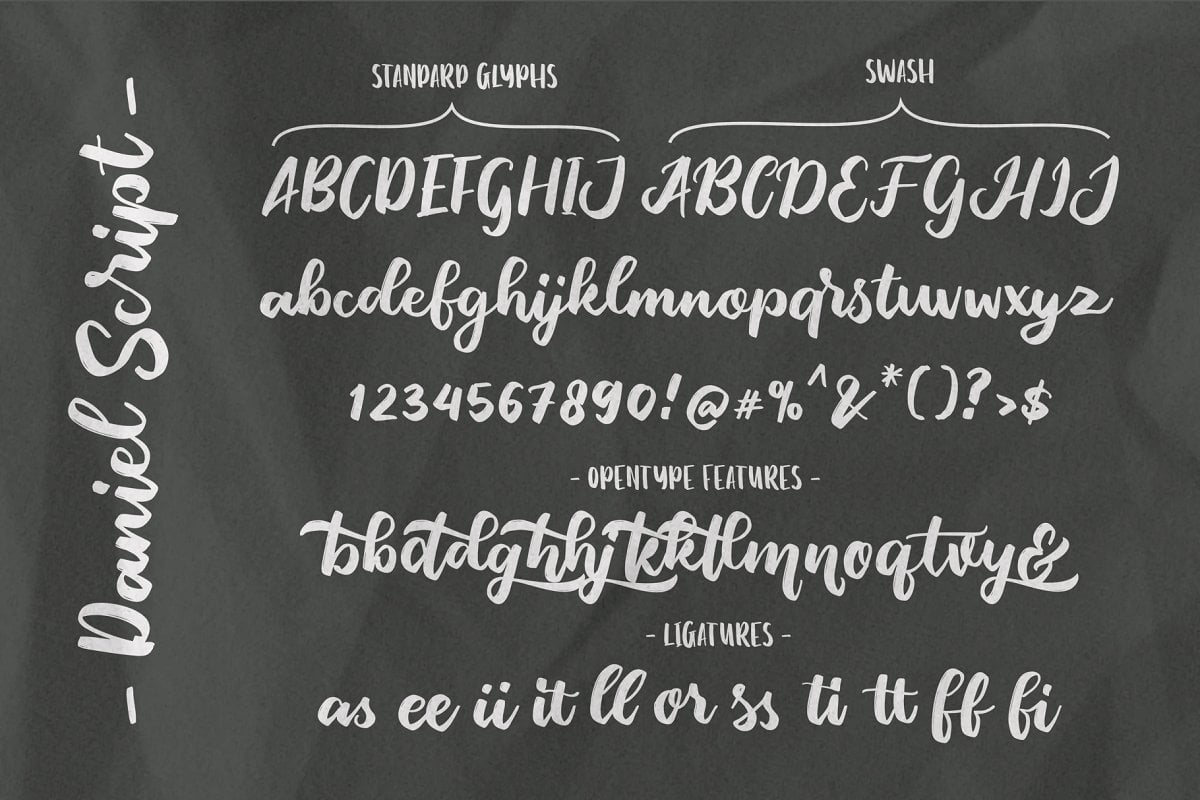 - Daniel Script -
STANDARD GLYPHS
SWASH
ABCDEFGHIJ ABCDEFGHIJ
abcdefghijklmnopqrstuvwxyz
1234567890!@#%^&*()?>$
- OPENTYPE FEATURES -
- LIGATURES -
as ee ii it ll or ss ti tt ff fi